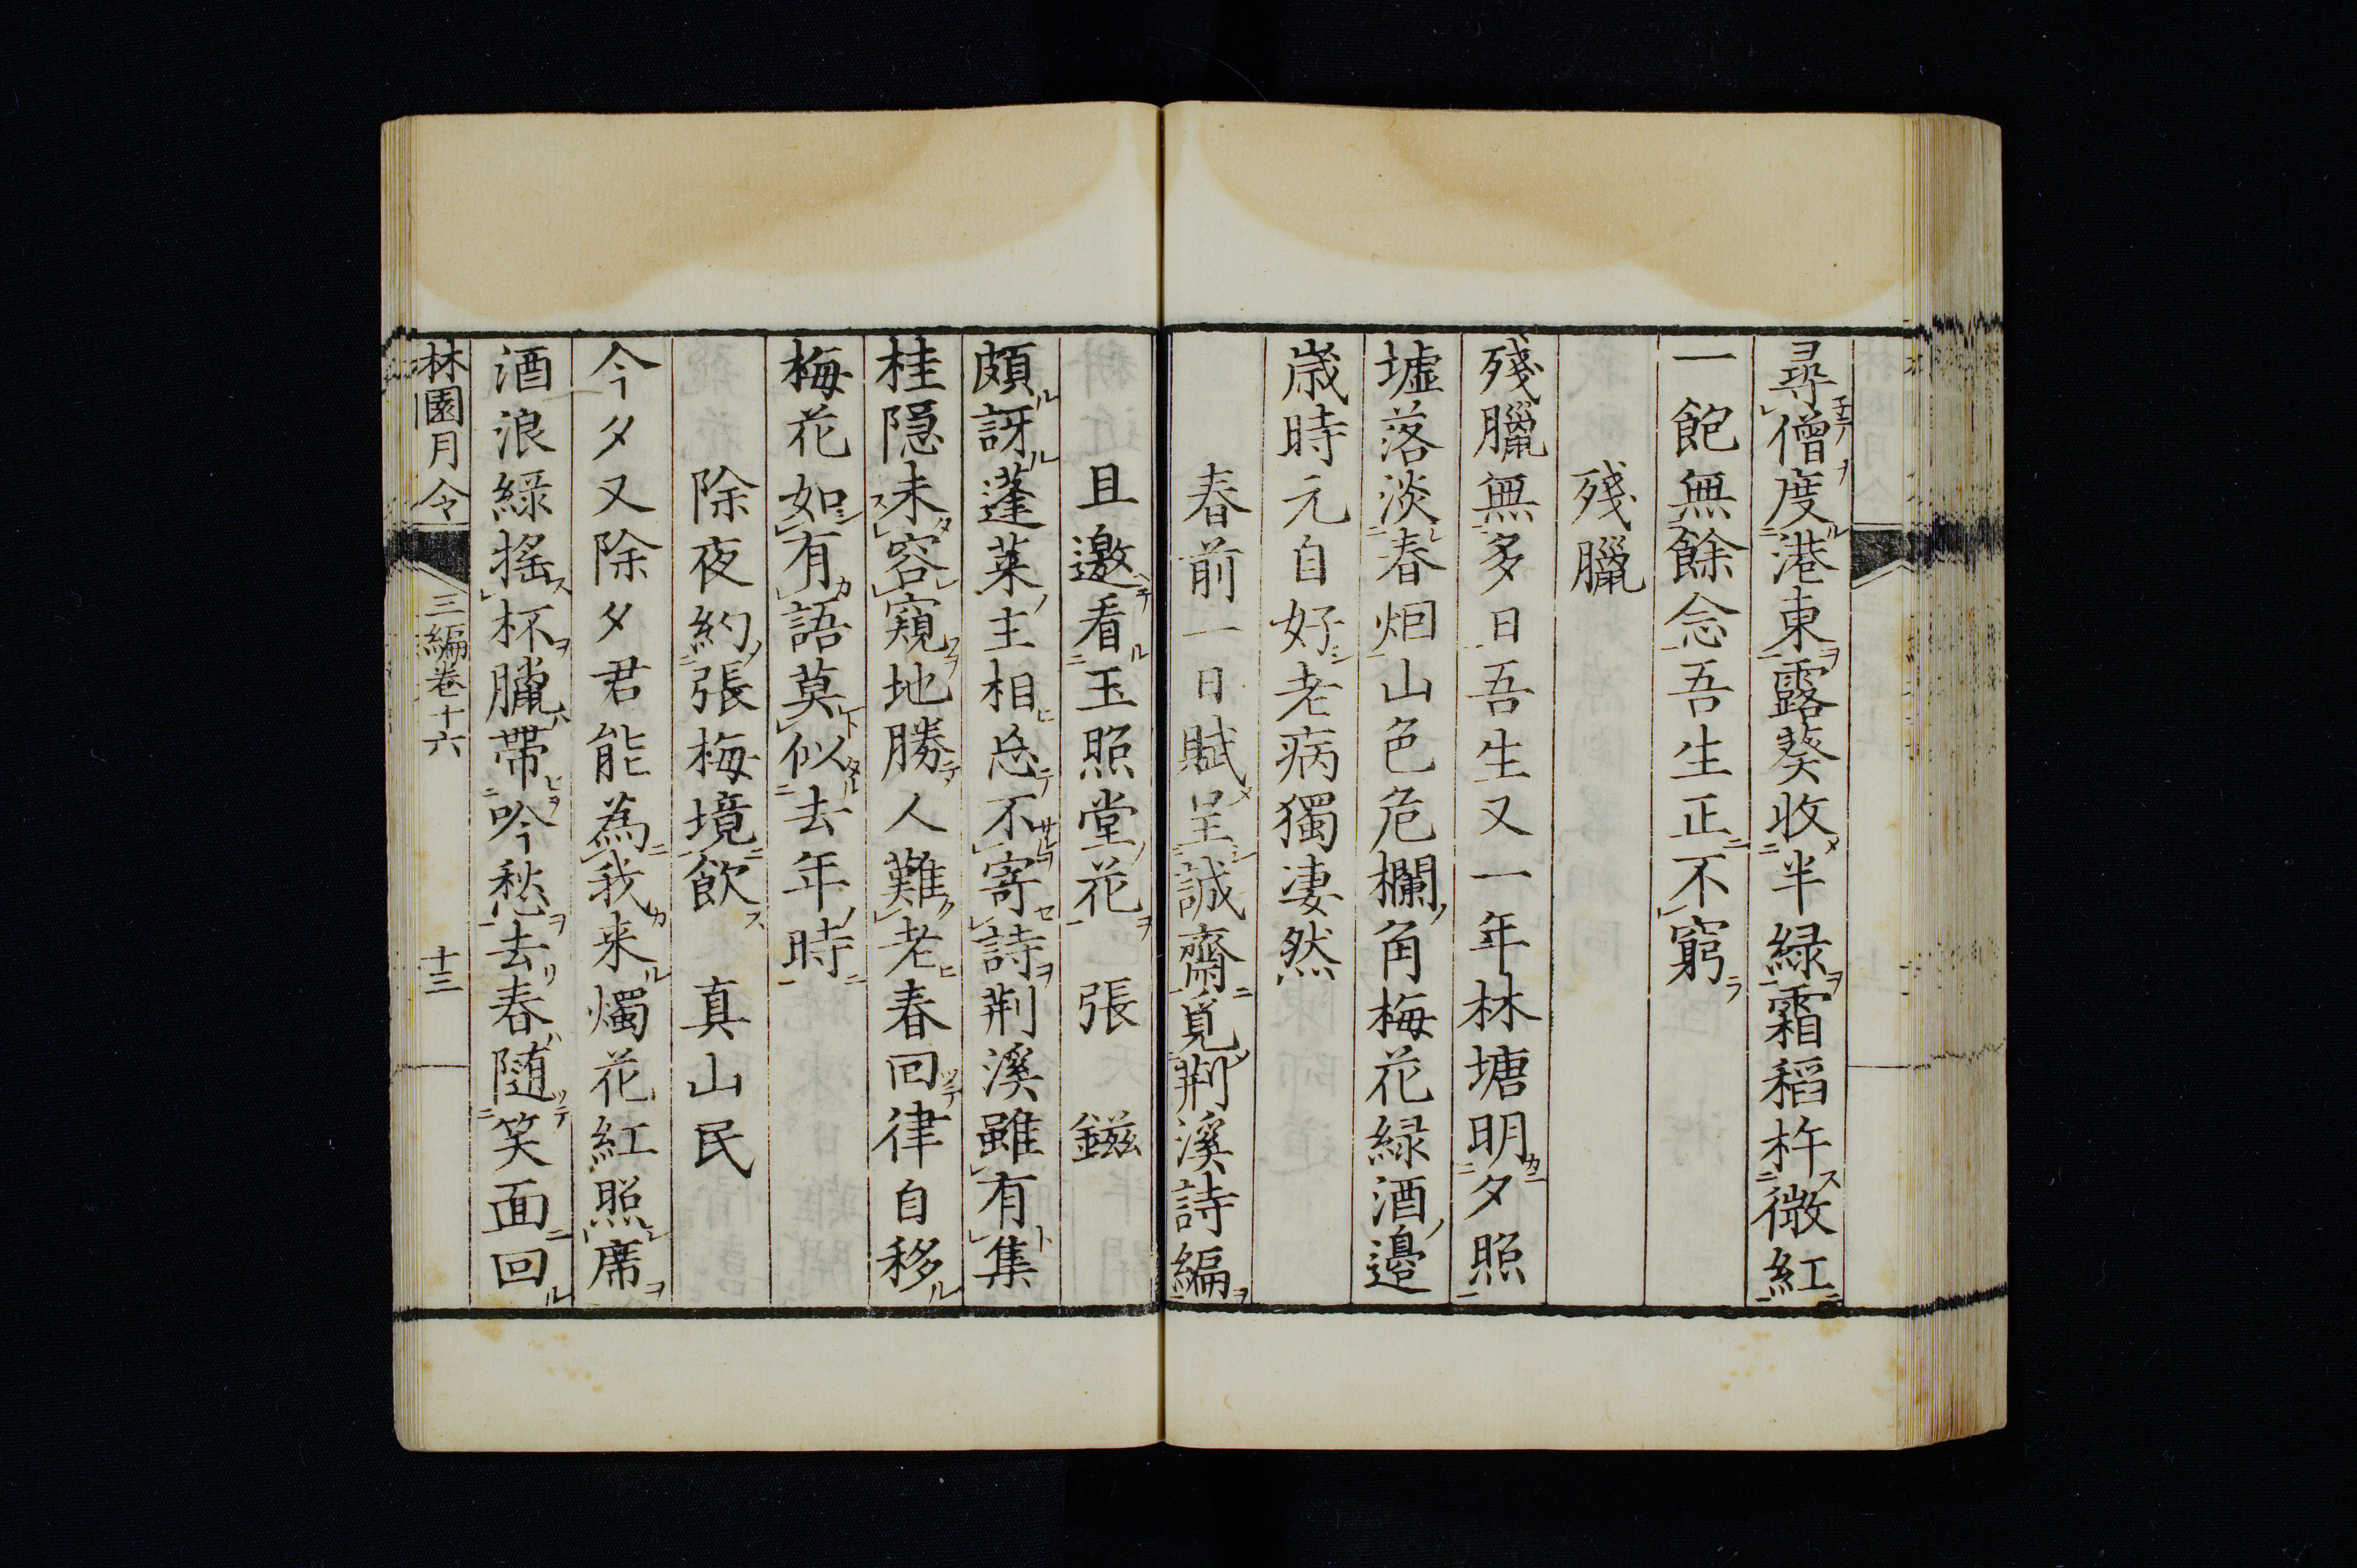 尋僧度港東露葵收半緑霜稻杵微紅
一飽無餘念吾生正不窮
殘臘
殘臘無多日吾生又一年林塘明夕照
墟落淡春烟山色危欄角梅花緑酒邉
歳時元自好老病獨凄然
春前一日賦呈誠齋覓荆溪詩編
且邀看玉照堂花　張　鎡
頗訝蓬萊主相忘不寄詩荆溪雖有集
桂隠未容窺地勝人難老春回律自移
梅花如有語莫似去年時
除夜約張梅境飲　真山民
今夕又除夕君能為我来燭花紅照席
酒浪緑揺杯臘帶吟愁去春随笑面回
林園月令　三編卷十六　十三